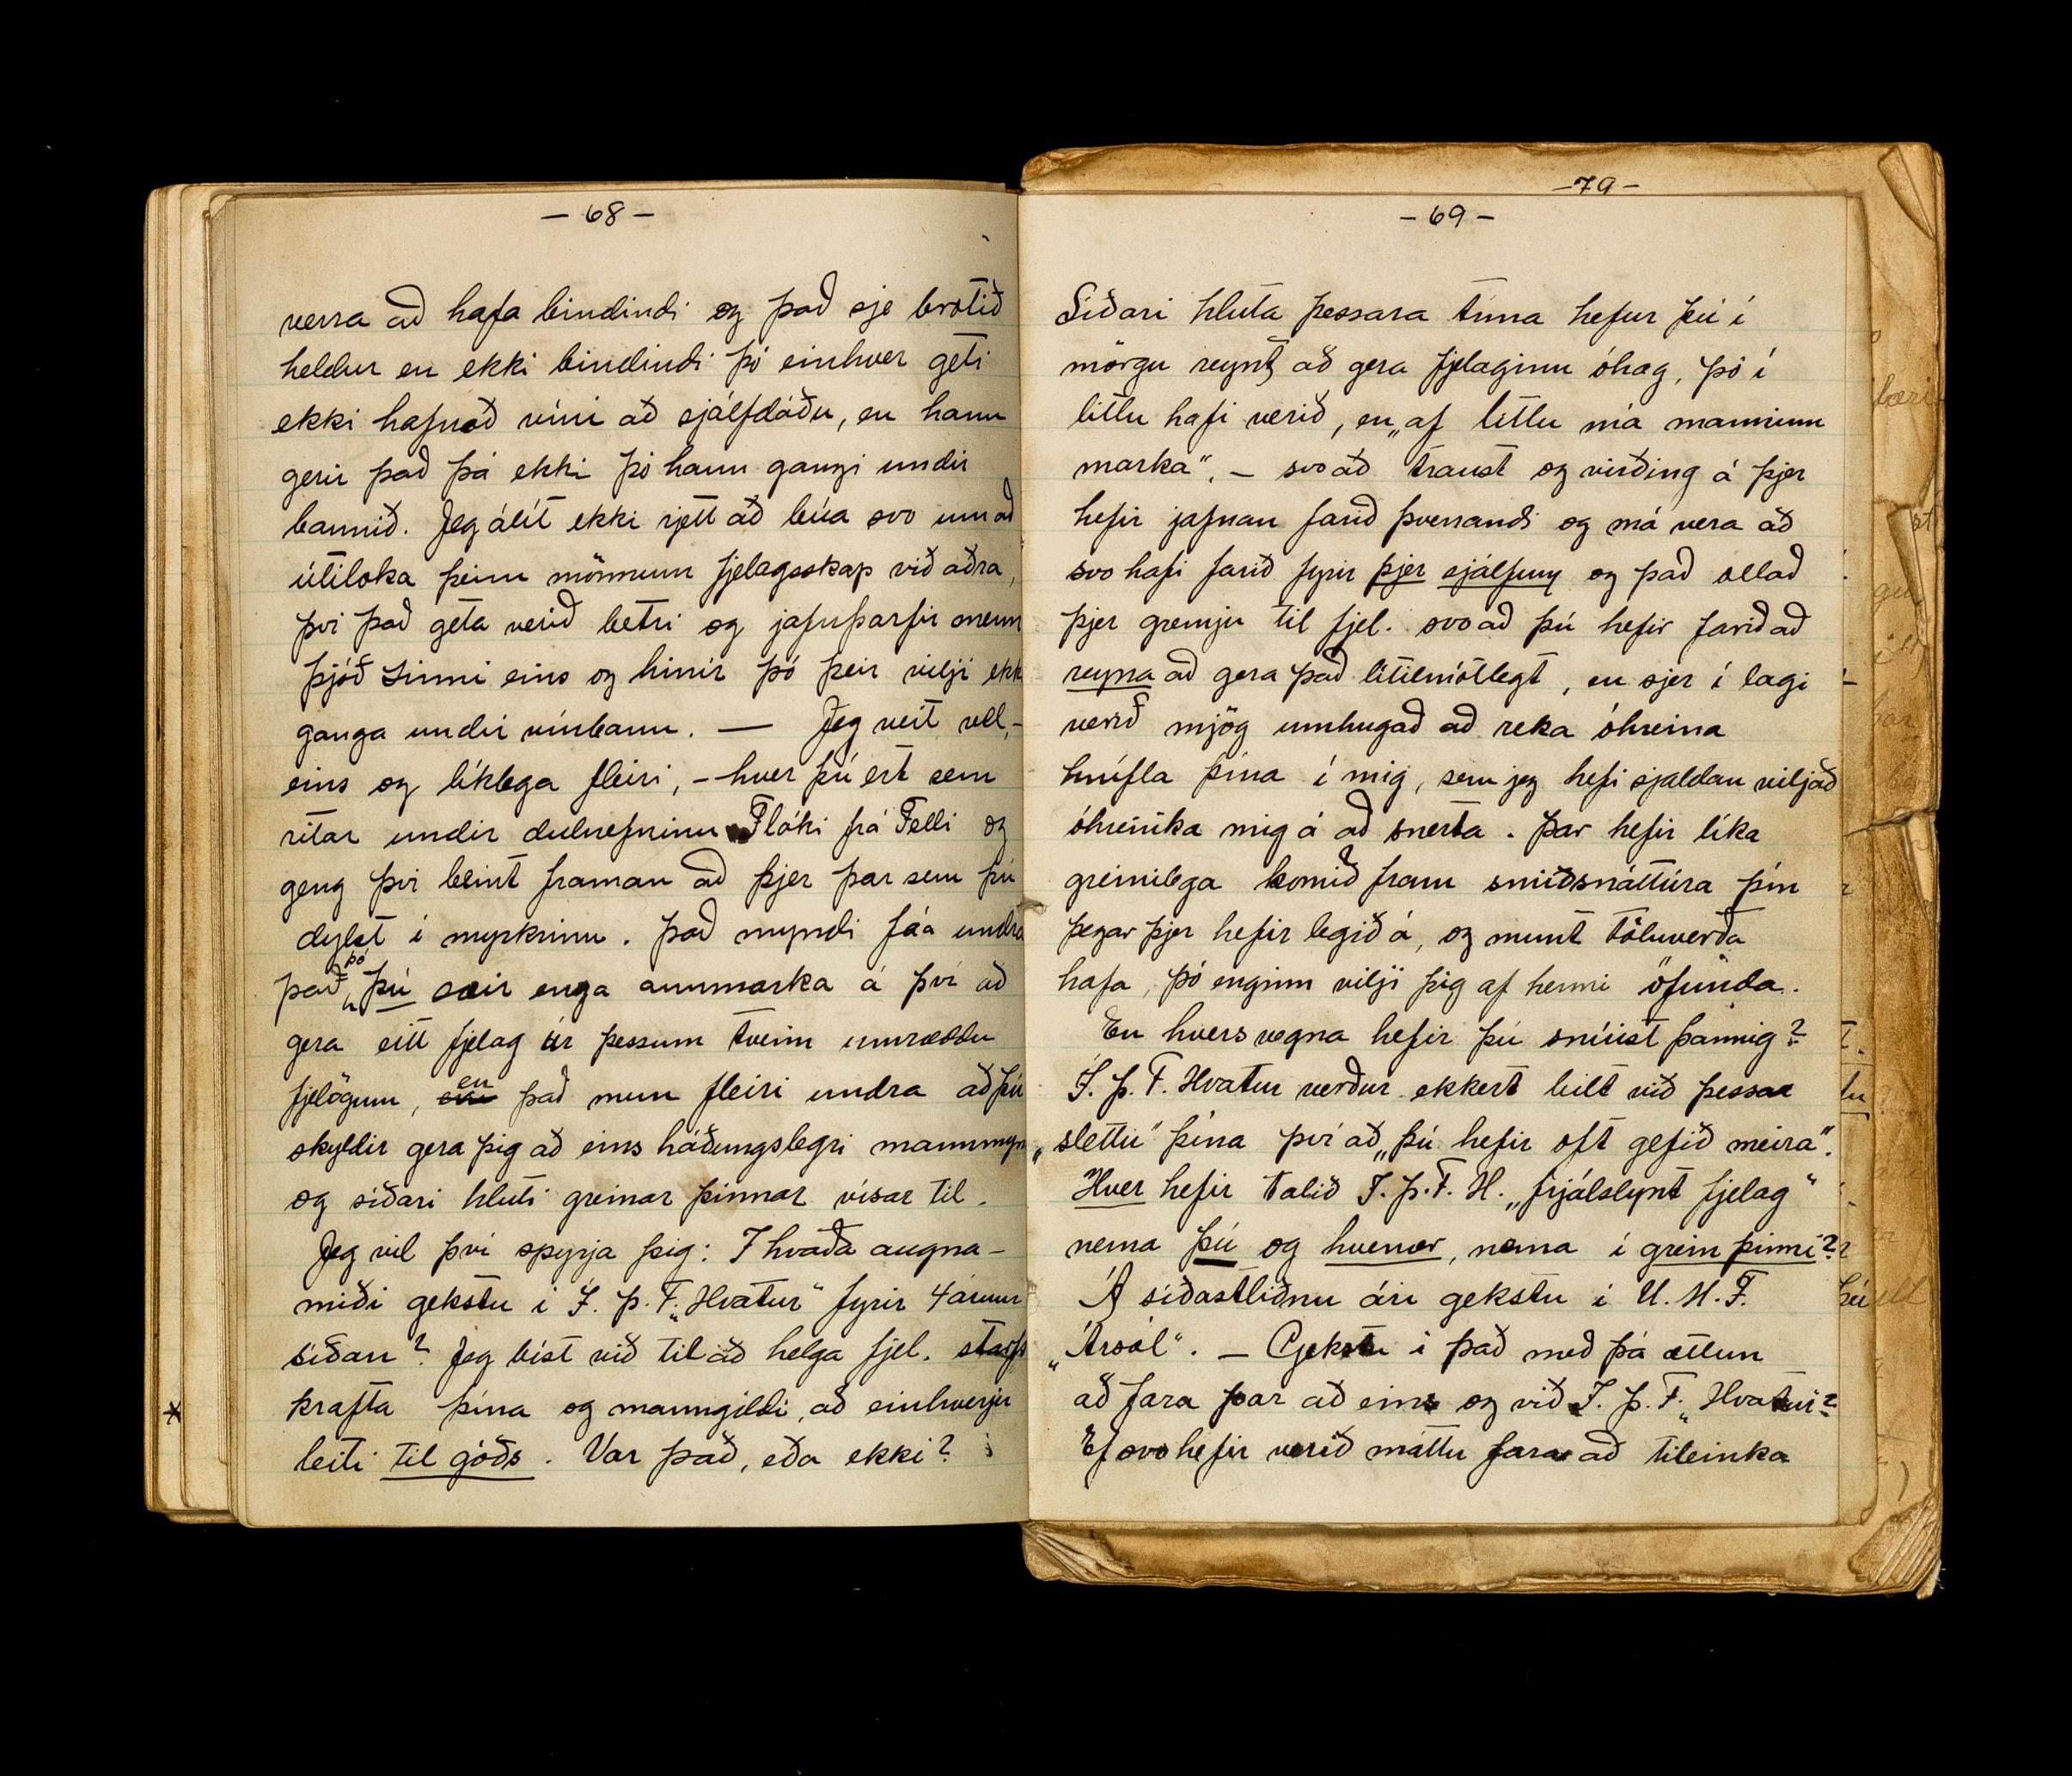 — 68 —
verra að hafa bindindi og það sje brotið
heldur en ekki bindindi þó einhver geti
ekki hafnað víni að sjálfdáðu, en hann
gerir það þá ekki þó hann gangi undir
bannið. Jeg álít ekki rjett að búa svo um að
útiloka þeim mönnum fjelagsskap við aðra,
því það geta verið betri og jafnþarfir menn
þjóð sinni eins og hinir þó þeir vilji ekk
ganga undir vínbann. — Jeg veit vel,-
eins og líklega fleiri, - hver þú ert sem
ritar undir dulnefninu Flóki frá Felli og
geng því beint framan að þjer þar sem þú
dylst í myrkrinu. Það myndi fáa undra
það, þó þú sæir enga annmarka á því að
gera eitt fjelag úr þessum tveim umræddu
fjelögum, en það mun fleiri undra að þú
skyldir gera þig að eins háðungslegri mannmyn
og síðari hluti greinar þinnar vísar til.
Jeg vil því spyrja þig: I hvaða augna-
miði gekstu í Í. þ. F. „Hvatur" fyrir 4 árum
síðan? Jeg bíst við til að helga fjel. starfs
krafta þína og manngildi, að einhverju
leiti til góðs. Var það, eða ekki?
— 79 —
— 69 —
Síðari hluta þessara tíma hefur þú í
mörgu reynt að gera fjelaginu óhag, þó í
littlu hafi verið, en „af littlu má manninn
marka". — svo að traust og virðing á þjer
hefir jafnan farið þverrandi og má vera að
svo hafi farið fyrir þjer sjálfum og það ollað
þjer gremju til fjel. svo að þú hefir farið að
reyna að gera það lítilmótlegt, en sjer í lagi
verið mjög umhugað að reka óhreina
hnífla þína í mig, sem jeg hefi sjaldan viljað
óhreinka mig á að snerta. Þar hefir líka
greinilega komið fram smiðsnáttúra þín
þegar þjer hefir legið á, og munt töluverða
hafa, þó enginn vilji þig af henni öfunda.
En hvers vegna hefir þú snúist þannig?
Í. Þ. F. Hvatur verður ekkert bilt við þessar
„slettu" þína því að „þú hefir oft gefið meira".
Hver hefir talið I. þ. F. H. „frjálslynt fjelag"
nema þú og hvenær, nema í grein þinni?
Á síðastliðnu ári gekstu í U. M. F.
„Ársól". — Gekstu í það með þá ætlun
að fara þar að eins og við I. þ. F. „Hvatur"?
Ef svo hefir verið máttu fara að tileinka